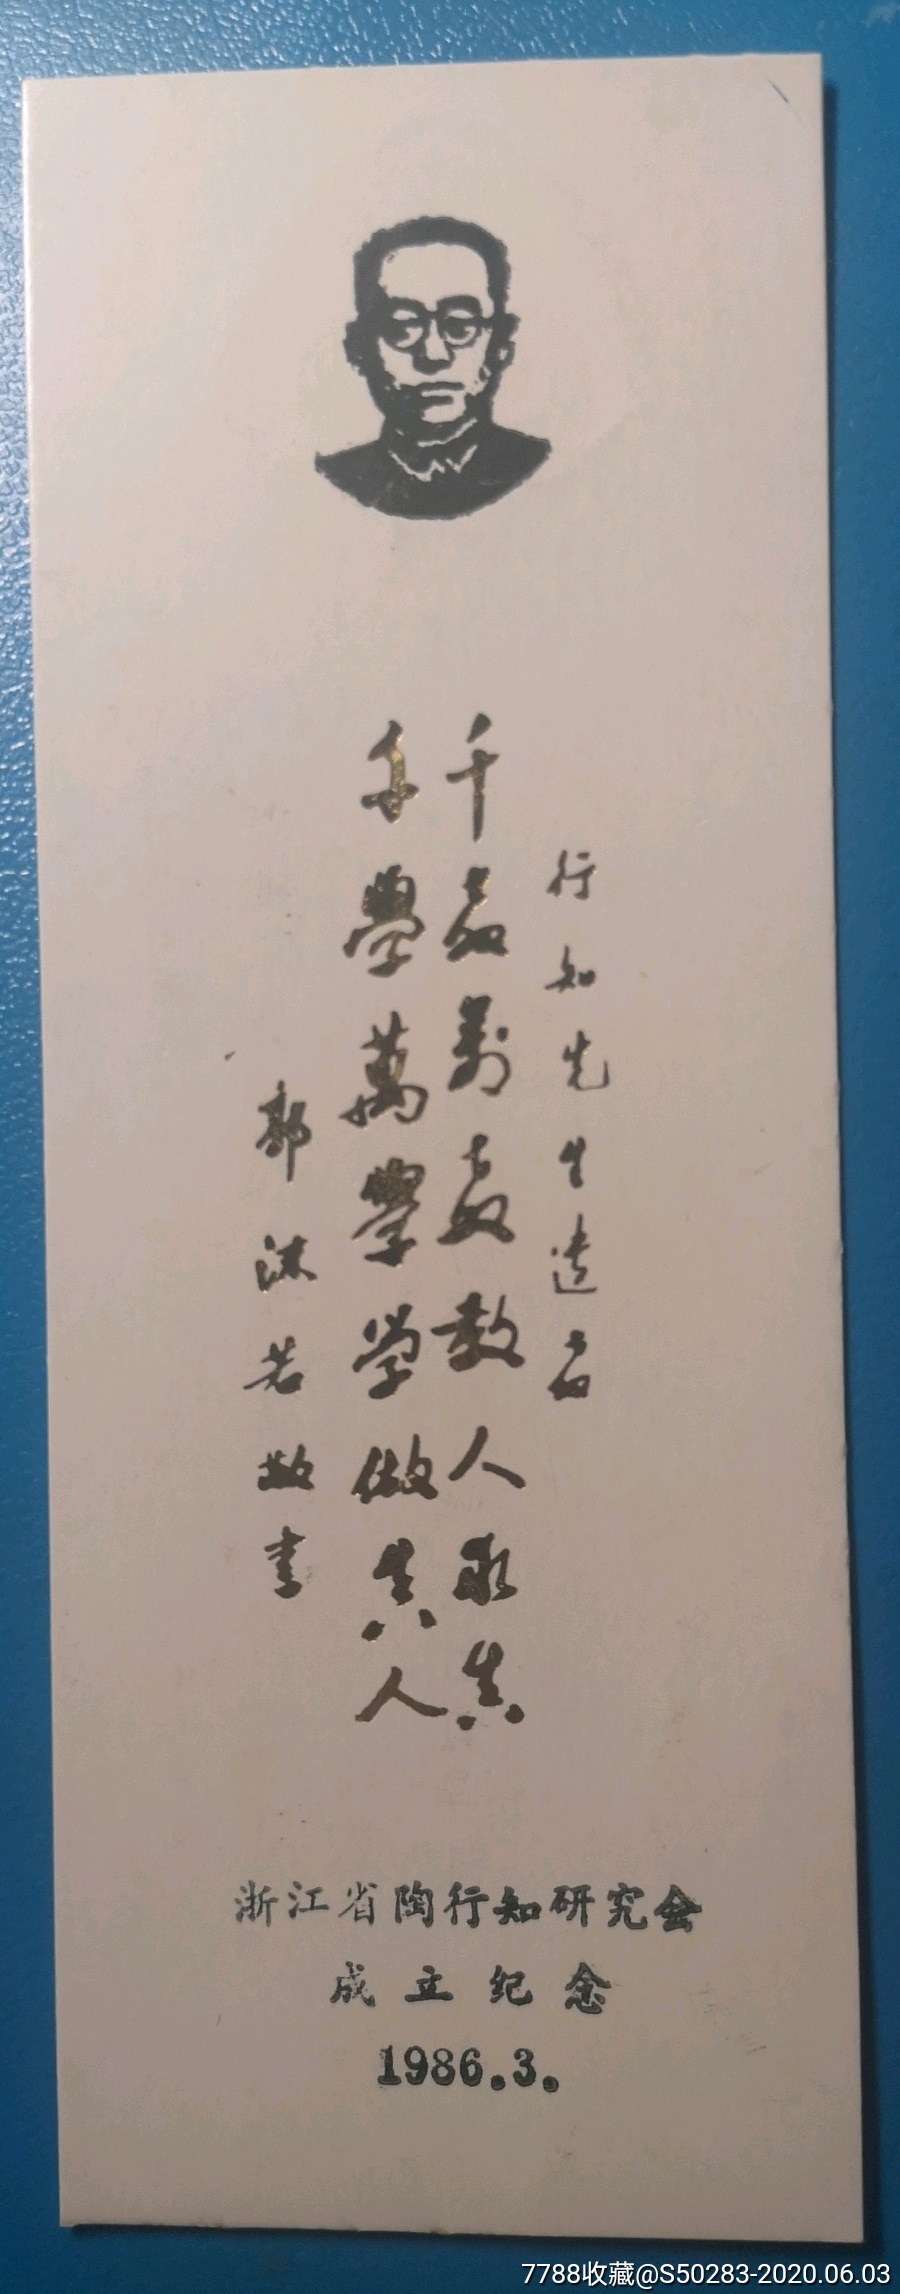 行知先生遗言
千教万教教人求真
千學萬學学做真人
郭沫若敬书
浙江省陶行知研究会
成立纪念
1986.3.
7788收藏@S50283-2020.06.03